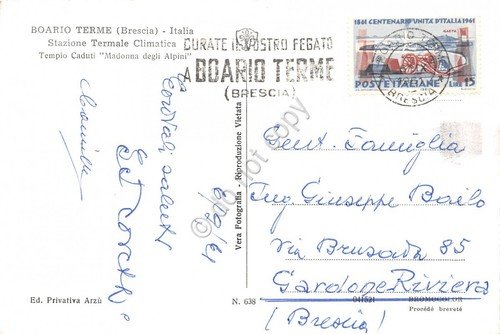 BOARIO TERME (Brescia) - Italia
Stazione Termale Climatica
Tempio Caduti "Madonna degli Alpini"
CURATE IL VOSTRO FEGATO
A BOARIO TERME
(BRESCIA)
1861 CENTENARIO UNITÀ D'ITALIA 1961
GAETA
POSTE ITALIANE LIRE 15
BRESCIA
Cordiali saluti
Vera Fotografia - Riproduzione Vietata
© do not copy
Gent. Famiglia
Ing Giuseppe Bailo
Via Brusada 85
Gardone Riviera
(Brescia)
Ed. Privativa Arzù
N. 638
041521
BROMOCOLOR
Procédé breveté